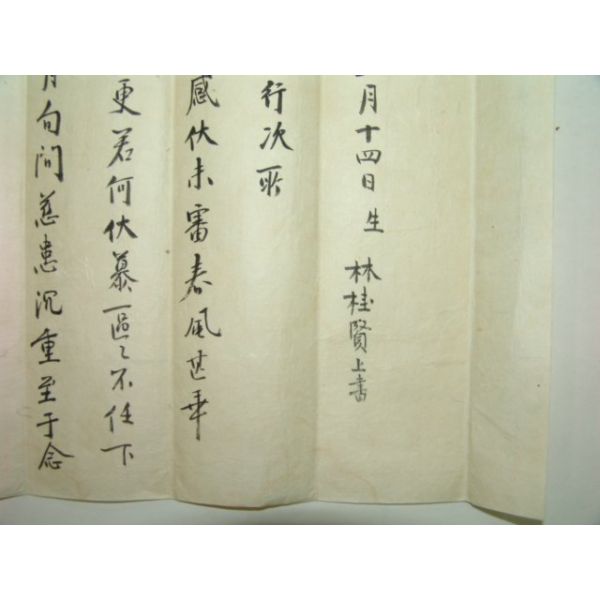 月十四日生 林桂賢上書
行次所
感伏未審春風甚乖
更若何伏慕區〻不任下
月旬間慈患沉重至于念